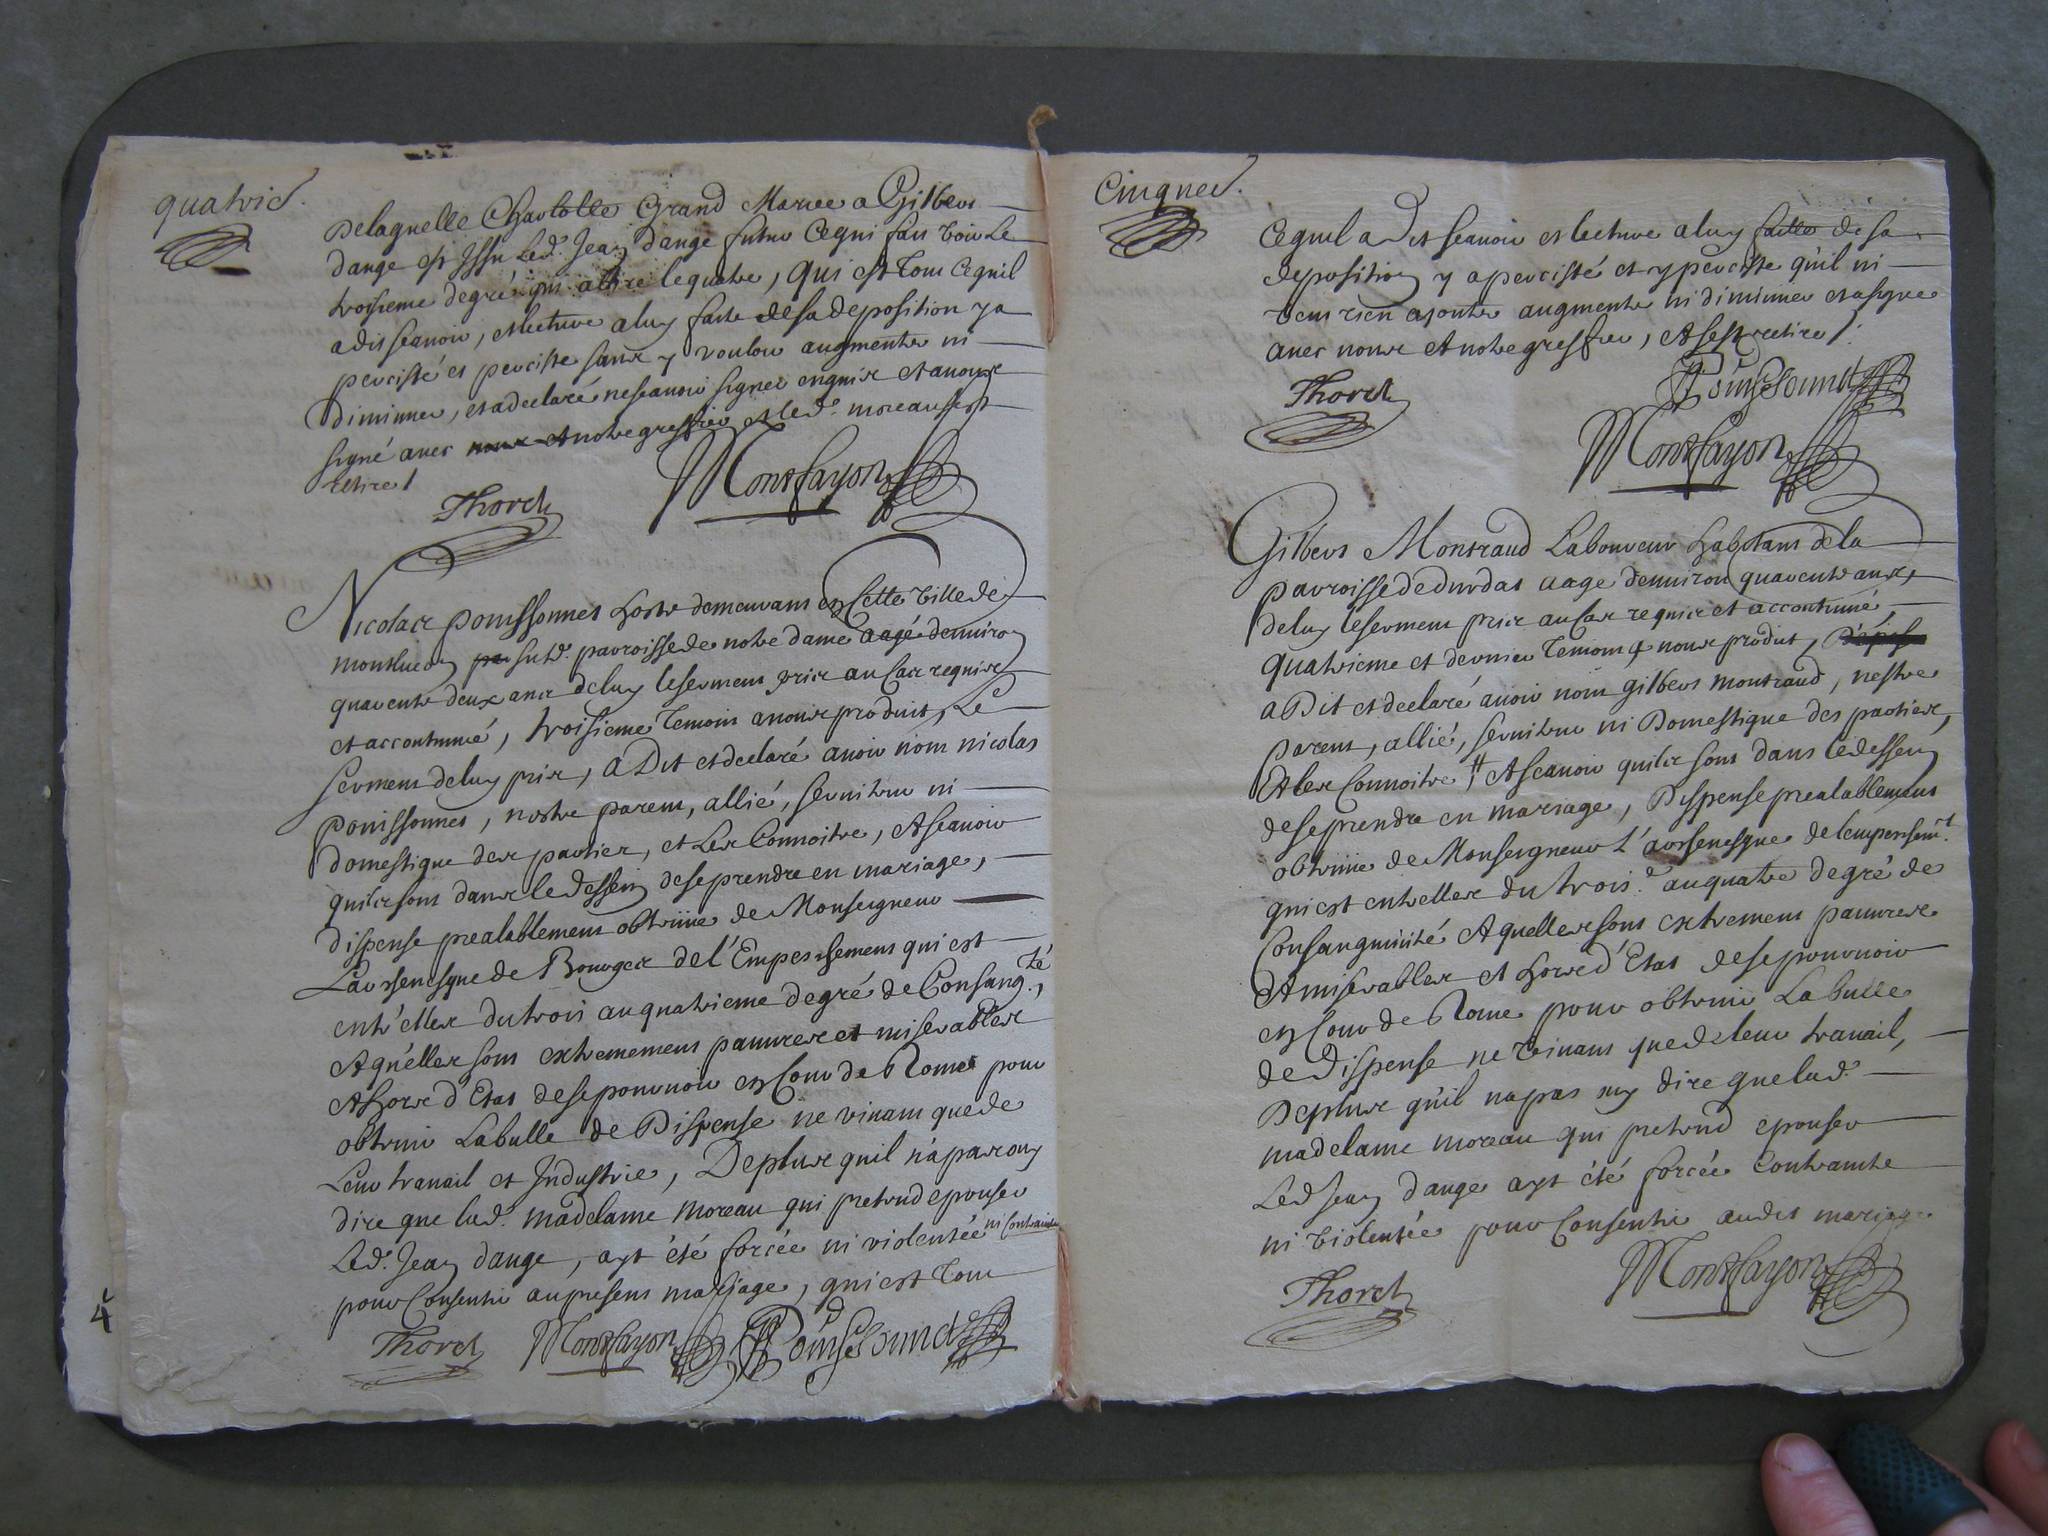 quatrie.
Delaquelle Charlotte Grand Mariee a Gilbert
dange est Issu Led. Jean dange futur Cequi fait voir Le
troisieme degré qui attire le quatre, qui est tout Cequil
a dit scavoir, et lecture a luy faite de sa deposition y a
percisté et perciste sans y vouloir augmenter ni
diminuer, et a declaré ne scavoir signer enquis et avons
signé avec nous et notre greffier et led. moreau sest
retiré /
Thoret Montfayon
Nicolas Ponissonnet hoste demeurant en Cette ville de
montlucon susd. parroisse de notre dame aagé denviron
quarente deux ans de luy le serment pris au Cas requis
et accoutumé, troisieme temoin a nous produit, Le
serment de luy pris, a Dit et declaré avoir nom nicolas
Ponissonnet, nestre parent, allié, serviteur ni
domestique des parties, et Les Connoitre, et scavoir
quils sont dans le dessein de se prendre en mariage,
dispense prealablement obtenüe de Monseigneur
Larsenesque de Bourges de l'Empessement qui est
entr'elles du trois au quatrieme degré de Consang.té,
et qu'elles sont extrememens pauvres et miserables
et hors d'Etat de se pourvoir en Cour de Rome pour
obtenir La bulle de Dispense ne vivant que de
Leur travail et Industrie, De plus quil n'a pas ouy
dire que lad. madelaine moreau qui pretend epouser
Led. Jean dange, ayt été forcée ni violentée ni contrainte
pour Consentir au present mariage, qui est tout
Thoret Montfayon
4
Cinquie.
Cequil a dit scavoir et lecture a luy faitte de sa
deposition y a percisté et y perciste qu'il ni
veut rien ajouter augmenter ni diminuer et a signé
avec nous et notre greffier, et sest retiré /.
Thoret
Montfayon
Gilbert Montraud Laboureur habitant de la
parroisse de durdat aage denviron quarente ans,
de luy le serment pris au Cas requis et accoutumé,
quatrieme et dernier temoin a nous produit,
a Dit et declaré avoir nom gilbert montraud, nestre
parent, allié, serviteur ni Domestique des parties,
et les Connoitre # et scavoir quils sont dans le dessein
de se prendre en mariage, Dispense prealablement
obtenüe de Monseigneur L'arssenesque de lempersem.t
qui est entrelles du trois.e au quatre degré de
Consanguinité et quelles sont extremement pauvres
et miserables et hors d'Etat de se pourvoir
en Cour de Rome pour obtenir La bulle
de Dispense ne vivant que de leur travail,
De plus qu'il na pas ouy dire que lad.
madelaine moreau qui pretend epouser
Led Jean dange ayt été forcée Contrainte
ni violentée pour Consentir audit mariage
Thoret Montfayon